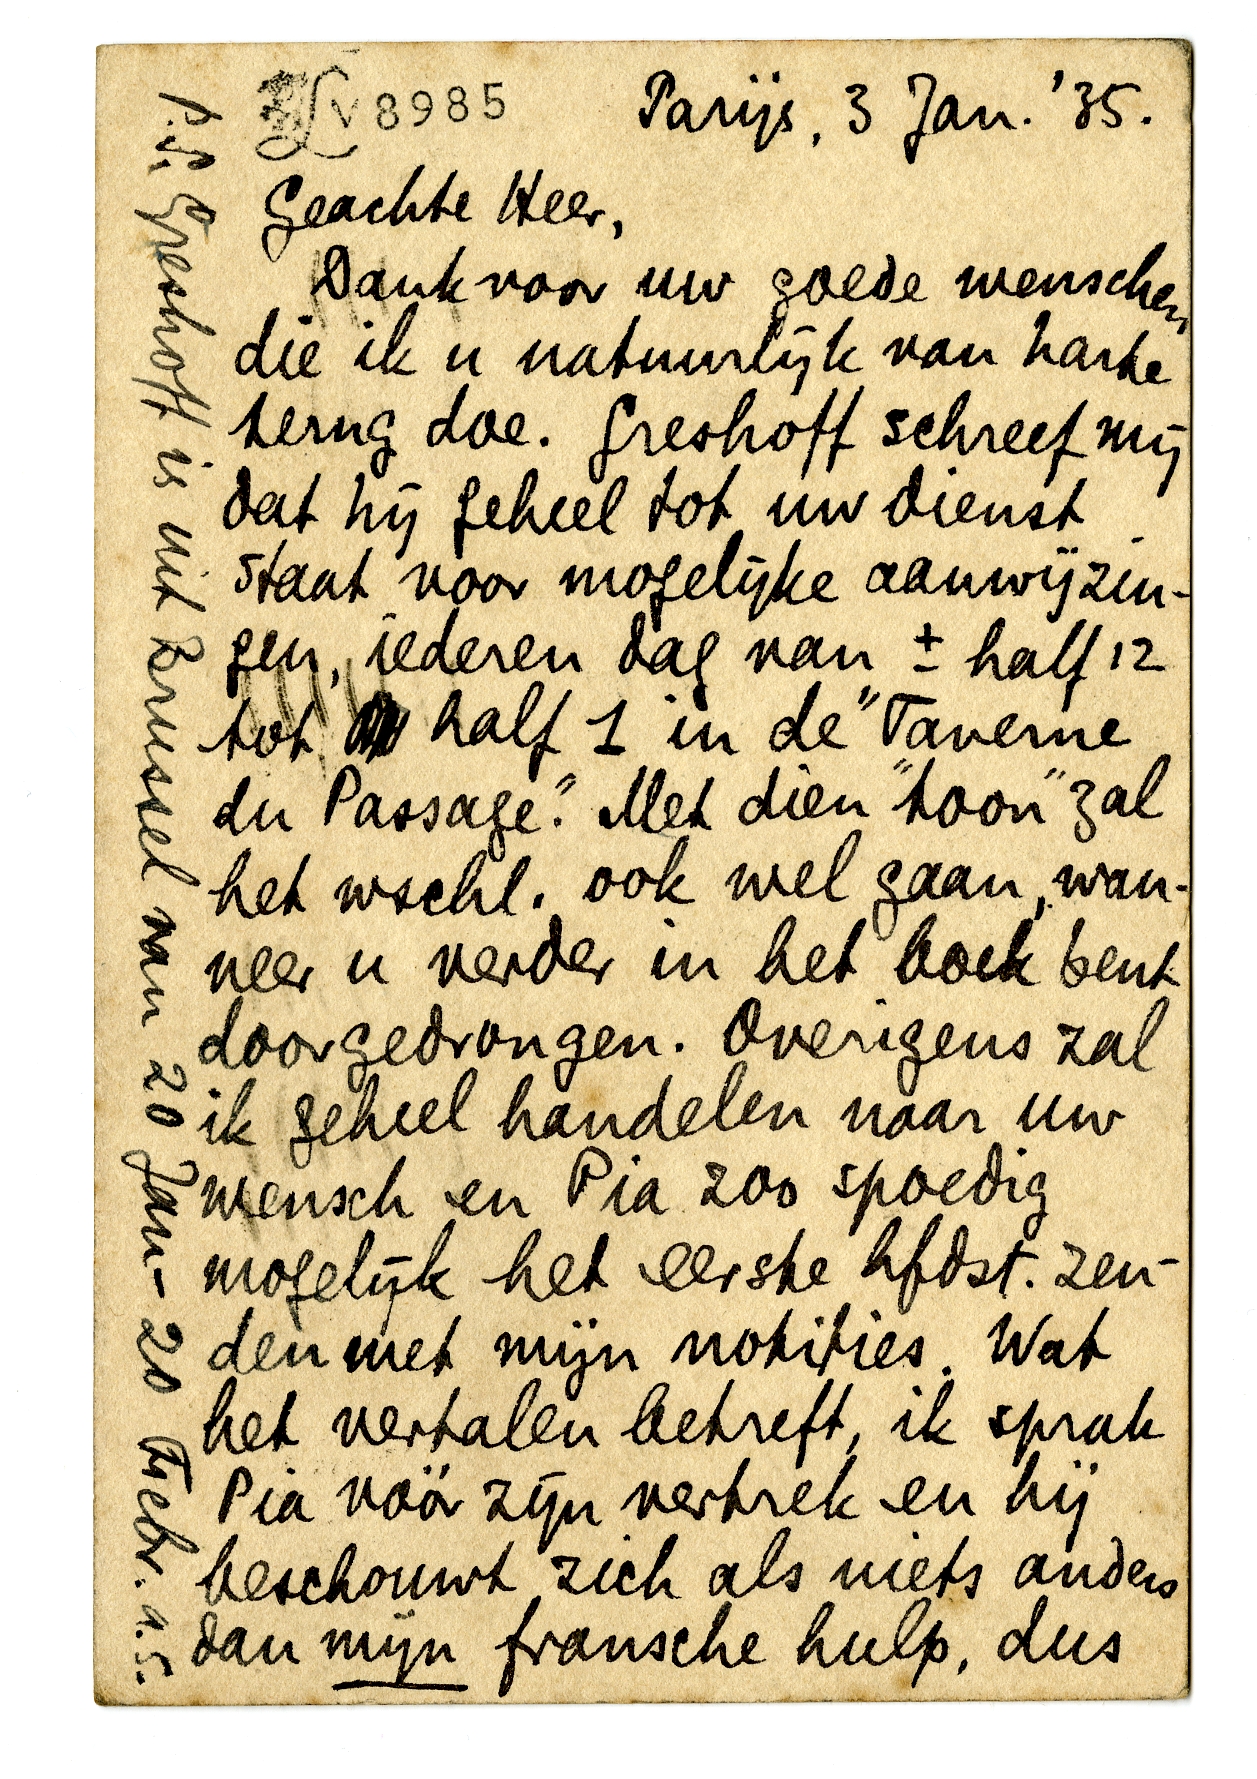 V 8985
Parijs, 3 Jan. '35.
Geachte Heer,
Dank voor uw goede wenschen
die ik u natuurlijk van harte
terug doe. Greshoff schreef mij
dat hij geheel tot uw dienst
staat voor mogelijke aanwijzin-
gen, iederen dag van ± half 12
tot half 1 in de "Taverne
du Passage". Met dien "toon" zal
het wschl. ook wel gaan, wan-
neer u verder in het boek bent
doorgedrongen. Overigens zal
ik geheel handelen naar uw
wensch en Pia zoo spoedig
mogelijk het eerste hfdst. zen-
den met mijn notities. Wat
het vertalen betreft, ik sprak
Pia vóór zijn vertrek en hij
beschouwt zich als niets anders
dan mijn fransche hulp, dus
P.S. Greshoff is uit Brussel van 20 Jan - 20 Febr. a.s.